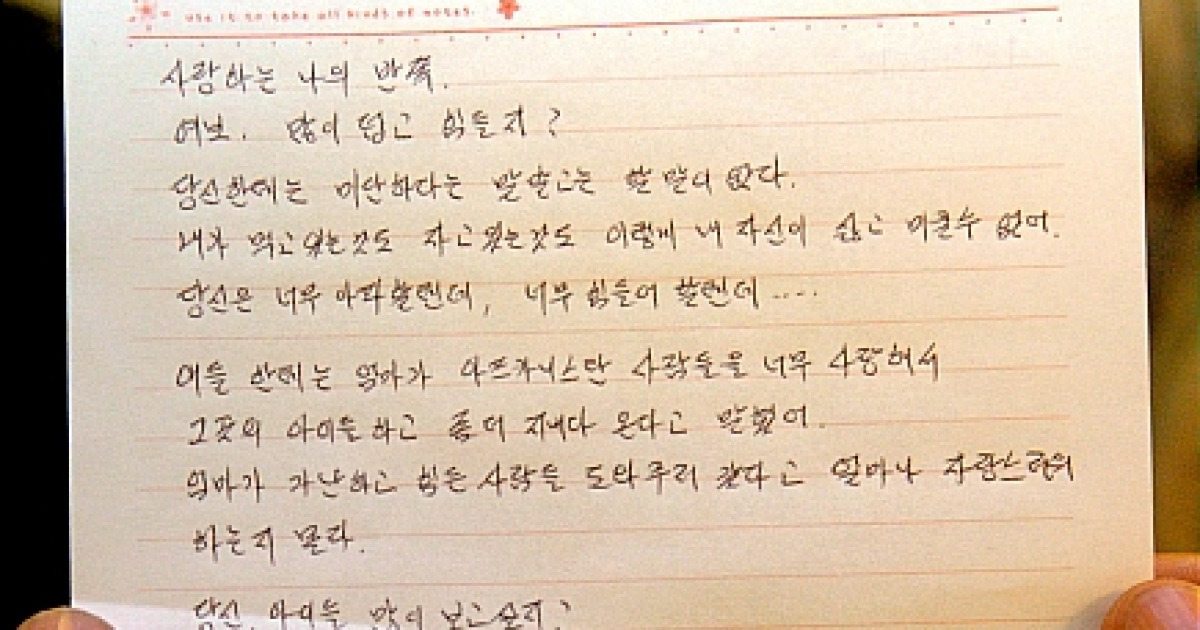 use it to take all kinds of notes.
사랑하는 나의 반쪽.
여보. 많이 덥고 힘들지?
당신한테는 미안하다는 말 말고는 할 말이 없다.
내가 먹고 있는것도 자고 있는것도 이렇게 내 자신이 싫고 미울수 없어.
당신은 너무 아파할텐데, 너무 힘들어 할텐데....
애들 한테는 엄마가 아프가니스탄 사람들을 너무 사랑해서
그곳의 아이들하고 좀 더 지내다 온다고 말했어.
엄마가 가난하고 힘든 사람들 도와주러 갔다고 얼마나 자랑스러워
하는지 몰라.
당신, 아이들 많이 보고싶지?